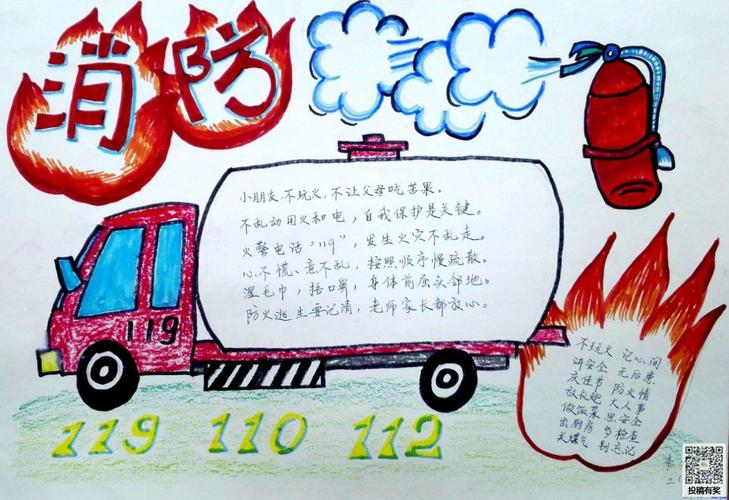 消防
小朋友，不玩火，不让父母吃苦果。
不乱动用火和电，自我保护是关键。
火警电话“119”，发生火灾不乱走。
心不慌、意不乱，按照顺序慢疏散。
湿毛巾，捂口鼻，身体前屈头邻地。
防火逃生要记清，老师家长都放心。
119
不玩火 记心间
讲安全 无后患
庆佳节 防火情
放礼炮 大人事
做饭菜 思安全
出厨房 多检查
关煤气 别忘记
119 110 112
投稿有奖